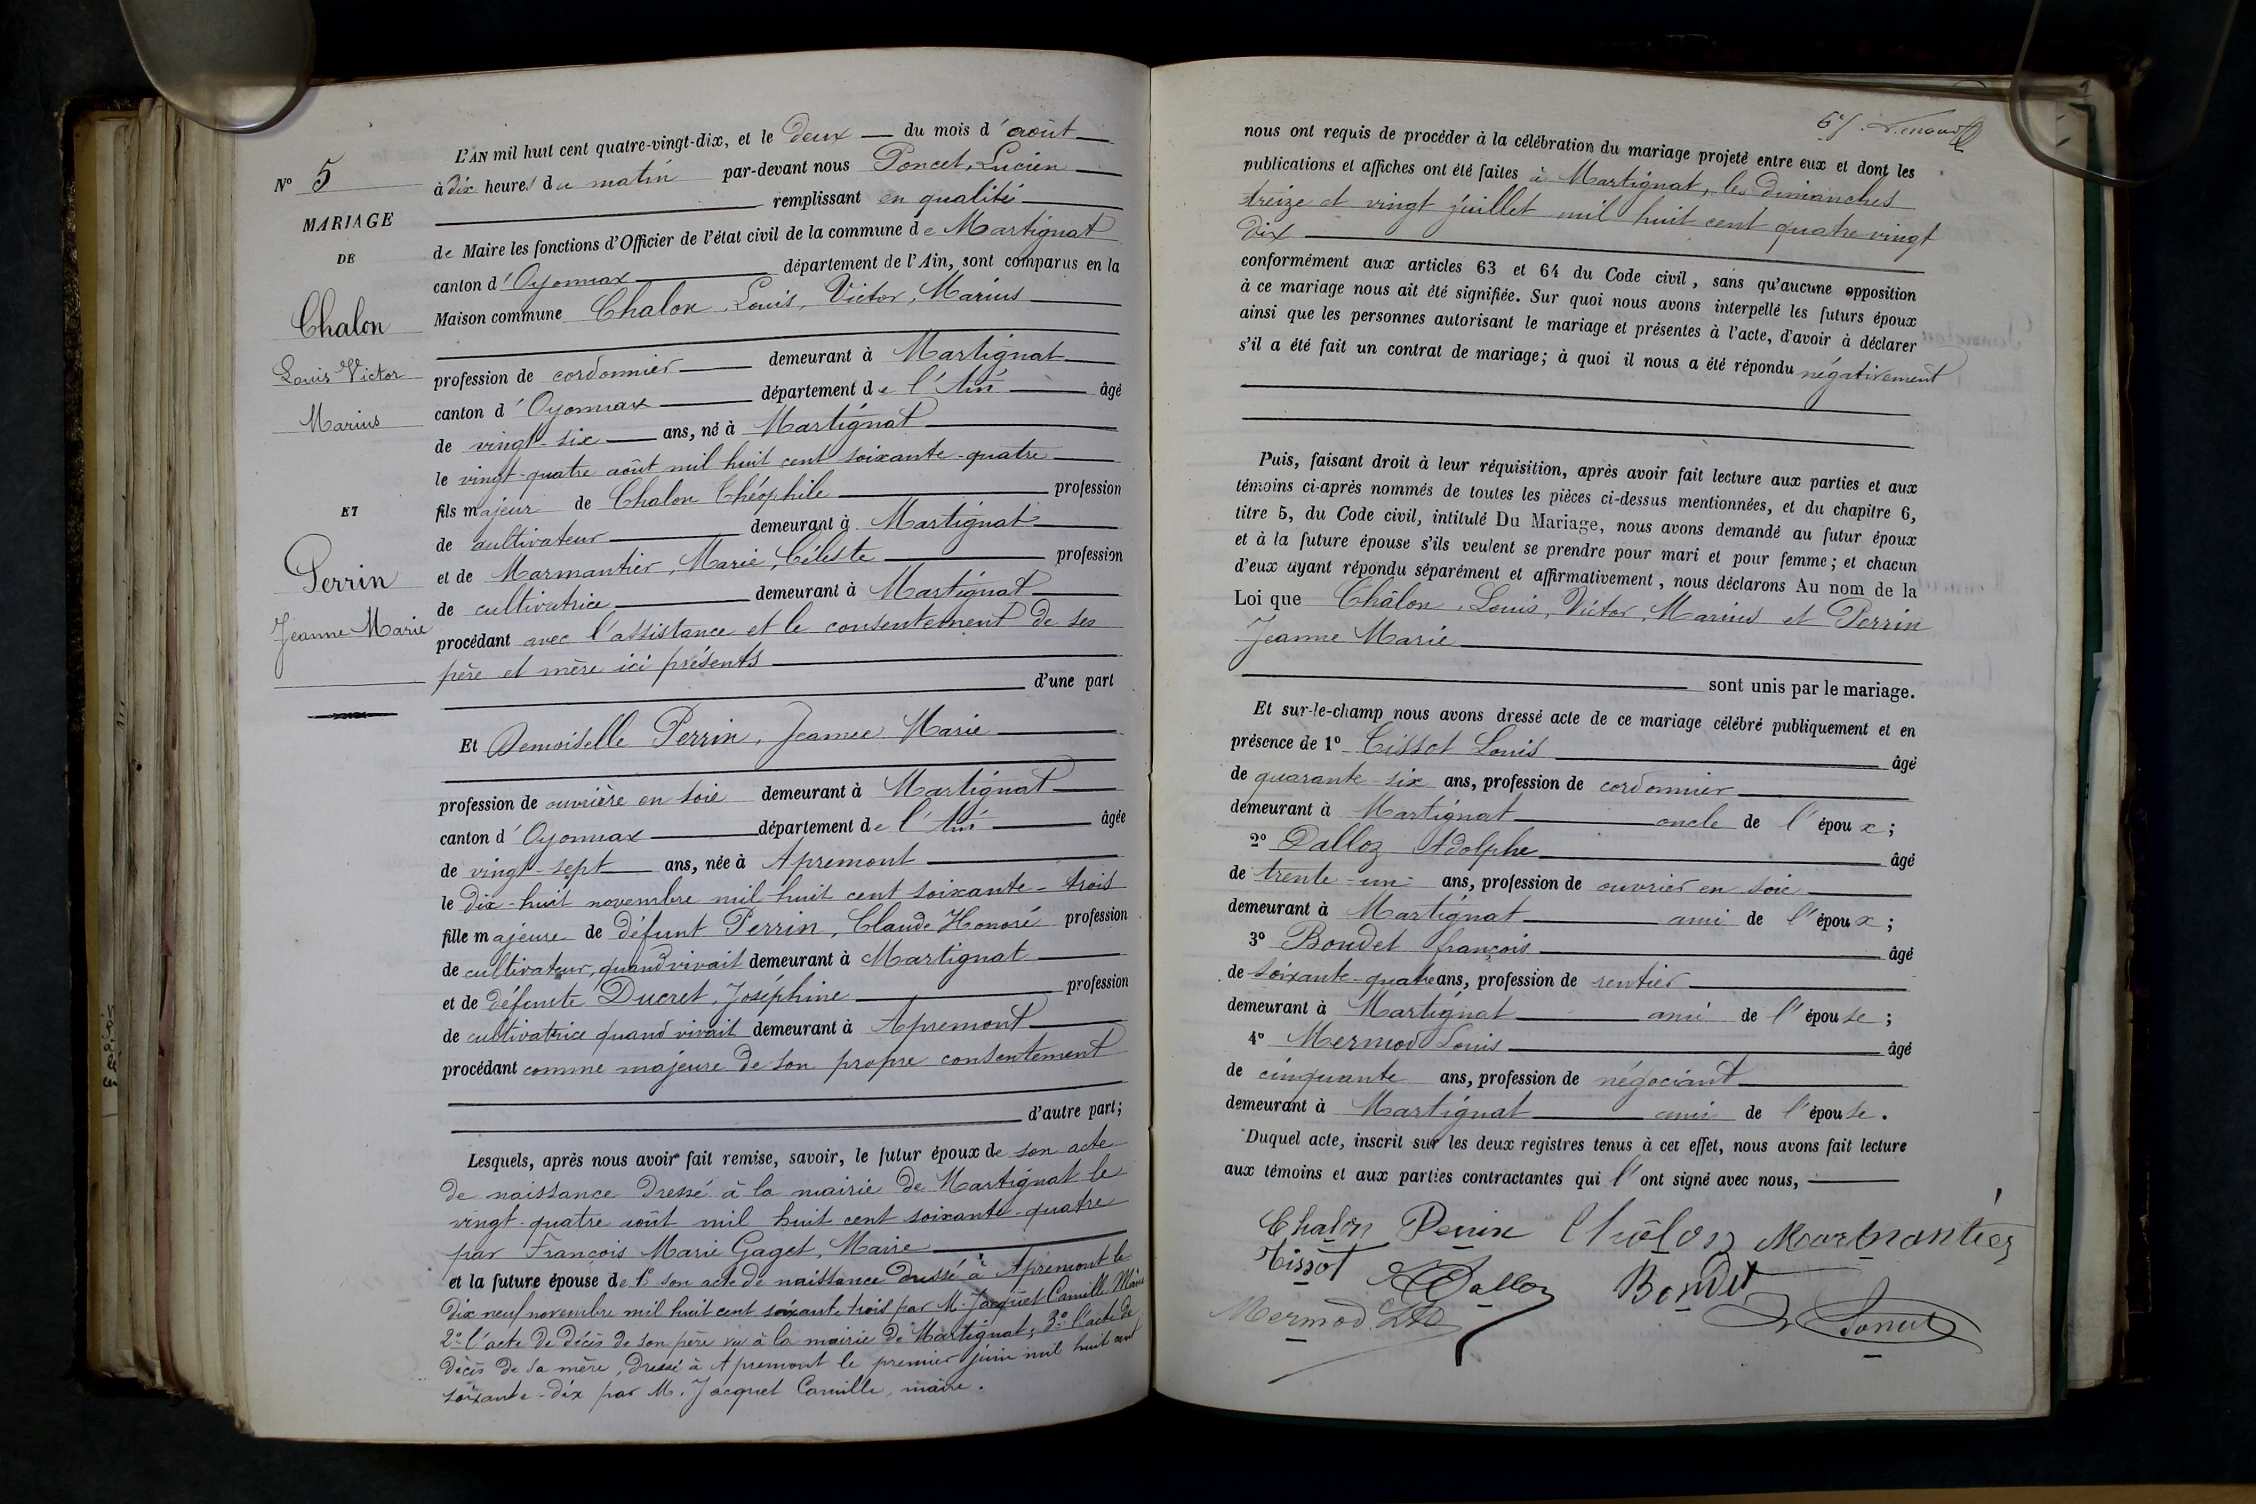 L'AN mil huit cent quatre-vingt-dix, et le deux du mois d'août
à dix heures du matin par-devant nous Poncet, Lucien
remplissant en qualité
de Maire les fonctions d'Officier de l'état civil de la commune de Martignat
canton d'Oyonnax département de l'Ain, sont comparus en la
Maison commune Chalon, Louis, Victor, Marius
profession de cordonnier demeurant à Martignat
canton d'Oyonnax département de l'Ain âgé
de vingt-six ans, né à Martignat
le vingt-quatre août mil huit cent soixante-quatre
fils majeur de Chalon Théophile profession
de cultivateur demeurant à Martignat
et de Marmantier, Marie, Céleste profession
de cultivatrice demeurant à Martignat
procédant avec l'assistance et le consentement de ses
père et mère ici présents
d'une part
Et Demoiselle Perrin, Jeanne Marie
profession de ouvrière en soie demeurant à Martignat
canton d'Oyonnax département de l'Ain âgée
de vingt-sept ans, née à Apremont
le dix-huit novembre mil huit cent soixante-trois
fille majeure de défunt Perrin, Claude Honoré profession
de cultivateur, quand vivait demeurant à Martignat
et de défunte Ducret, Joséphine profession
de cultivatrice quand vivait demeurant à Apremont
procédant comme majeure de son propre consentement
d'autre part;
Lesquels, après nous avoir fait remise, savoir, le futur époux de son acte
de naissance dressé à la mairie de Martignat le
vingt-quatre août mil huit cent soixante-quatre
par François Marie Gaget, Maire
et la future épouse de 1° son acte de naissance dressé à Apremont le
dix neuf novembre mil huit cent soixante trois par M. Jacquet Camille Maire
2° l'acte de décès de son père vu à la mairie de Martignat; 3° l'acte de
décès de sa mère, dressé à Apremont le premier juin mil huit cent
soixante-dix par M. Jacquet Camille, maire.
N° 5
MARIAGE
DE
Chalon
Louis Victor
Marius
ET
Perrin
Jeanne Marie
nous ont requis de procéder à la célébration du mariage projeté entre eux et dont les
publications et affiches ont été faites à Martignat, les dimanches
treize et vingt juillet mil huit cent quatre vingt
dix
conformément aux articles 63 et 64 du Code civil, sans qu'aucune opposition
à ce mariage nous ait été signifiée. Sur quoi nous avons interpellé les futurs époux
ainsi que les personnes autorisant le mariage et présentes à l'acte, d'avoir à déclarer
s'il a été fait un contrat de mariage; à quoi il nous a été répondu négativement
Puis, faisant droit à leur réquisition, après avoir fait lecture aux parties et aux
témoins ci-après nommés de toutes les pièces ci-dessus mentionnées, et du chapitre 6,
titre 5, du Code civil, intitulé Du Mariage, nous avons demandé au futur époux
et à la future épouse s'ils veulent se prendre pour mari et pour femme; et chacun
d'eux ayant répondu séparément et affirmativement, nous déclarons Au nom de la
Loi que Châlon, Louis, Victor, Marius et Perrin
Jeanne Marie
sont unis par le mariage.
Et sur-le-champ nous avons dressé acte de ce mariage célébré publiquement et en
présence de 1° Tissot Louis âgé
de quarante-six ans, profession de cordonnier
demeurant à Martignat oncle de l'époux;
2° Dalloz Adolphe âgé
de trente-un ans, profession de ouvrier en soie
demeurant à Martignat ami de l'époux;
3° Boudet françois âgé
de soixante-quatre ans, profession de rentier
demeurant à Martignat ami de l'épouse;
4° Mermod Louis âgé
de cinquante ans, profession de négociant
demeurant à Martignat ami de l'épouse.
Duquel acte, inscrit sur les deux registres tenus à cet effet, nous avons fait lecture
aux témoins et aux parties contractantes qui l'ont signé avec nous,
Chalon Perrin Châlon Marmantier
Tissot Dalloz Boudet
Mermod Poncet